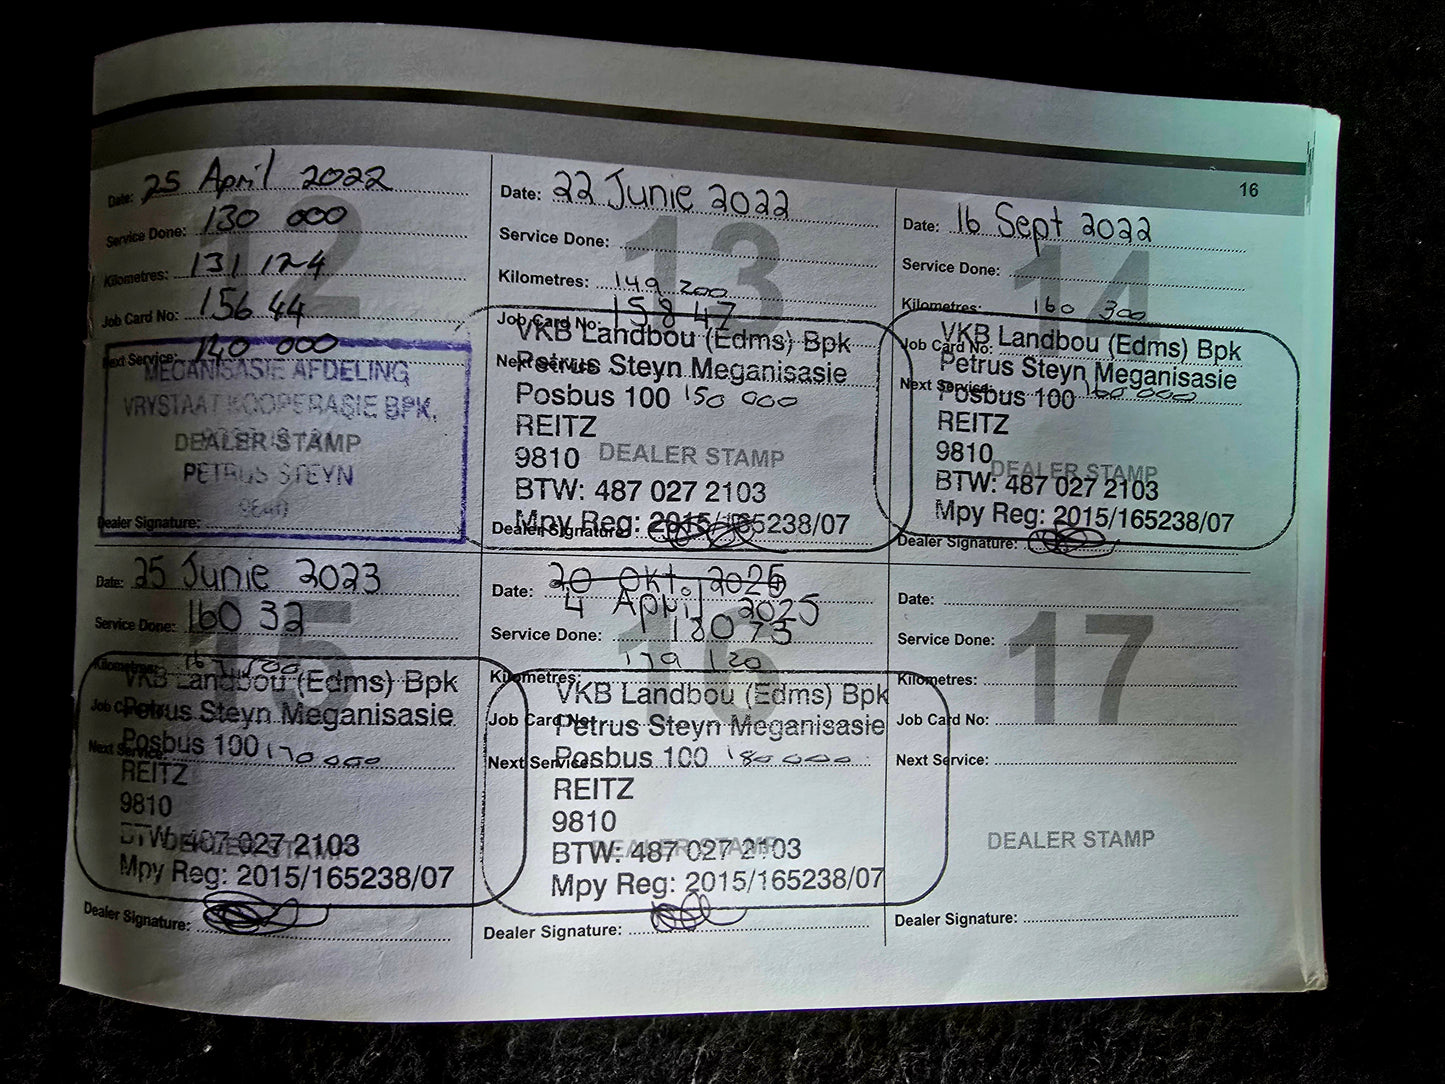 16
12
Date: 25 April 2022
Service Done: 130 000
Kilometres: 131 124
Job Card No: 156 44
Next Service: 140 000
MEGANISASIE AFDELING
VRYSTAAT KOOPERASIE BPK.
DEALER STAMP
PETRUS STEYN
Dealer Signature:
13
Date: 22 Junie 2022
Service Done:
Kilometres: 149 200
Job Card No: 158 47
VKB Landbou (Edms) Bpk
Next Service
Petrus Steyn Meganisasie
Posbus 100 150 000
REITZ
9810 DEALER STAMP
BTW: 487 027 2103
Mpy Reg: 2015/165238/07
Dealer Signature:
14
Date: 16 Sept 2022
Service Done:
Kilometres: 160 300
VKB Landbou (Edms) Bpk
Job Card No:
Petrus Steyn Meganisasie
Next Service:
Posbus 100 160 000
REITZ
9810
DEALER STAMP
BTW: 487 027 2103
Mpy Reg: 2015/165238/07
Dealer Signature:
15
Date: 25 Junie 2023
Service Done: 160 32
Kilometres:
VKB Landbou (Edms) Bpk
Job Card
Petrus Steyn Meganisasie
Next Service
Posbus 100 170 000
REITZ
9810
BTW: 487 027 2103
DEALER STAMP
Mpy Reg: 2015/165238/07
Dealer Signature:
16
20 Okt. 2025
Date: 4 April 2025
Service Done: 18073
179 120
Kilometres:
VKB Landbou (Edms) Bpk
Job Card No:
Petrus Steyn Meganisasie
Next Service: Posbus 100 180 000
REITZ
9810
DEALER STAMP
BTW: 487 027 2103
Mpy Reg: 2015/165238/07
Dealer Signature:
17
Date:
Service Done:
Kilometres:
Job Card No:
Next Service:
DEALER STAMP
Dealer Signature: